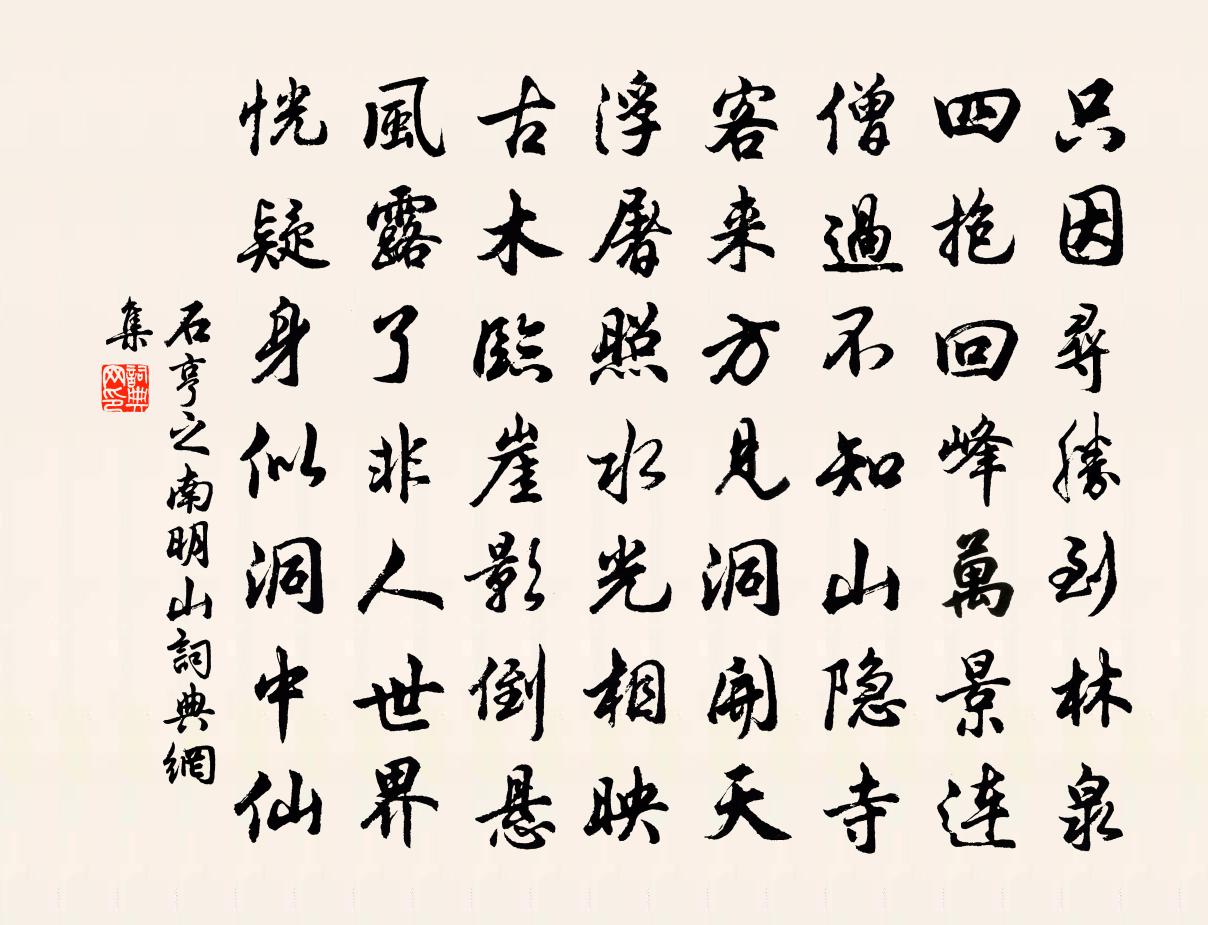 只因尋勝到林泉
四抱回峰萬景連
僧過不知山隐寺
客来方見洞開天
浮屠照水光相映
古木臨崖影倒懸
風露了非人世界
恍疑身似洞中仙
石亨之南明山詞典網
集
詞典
网印